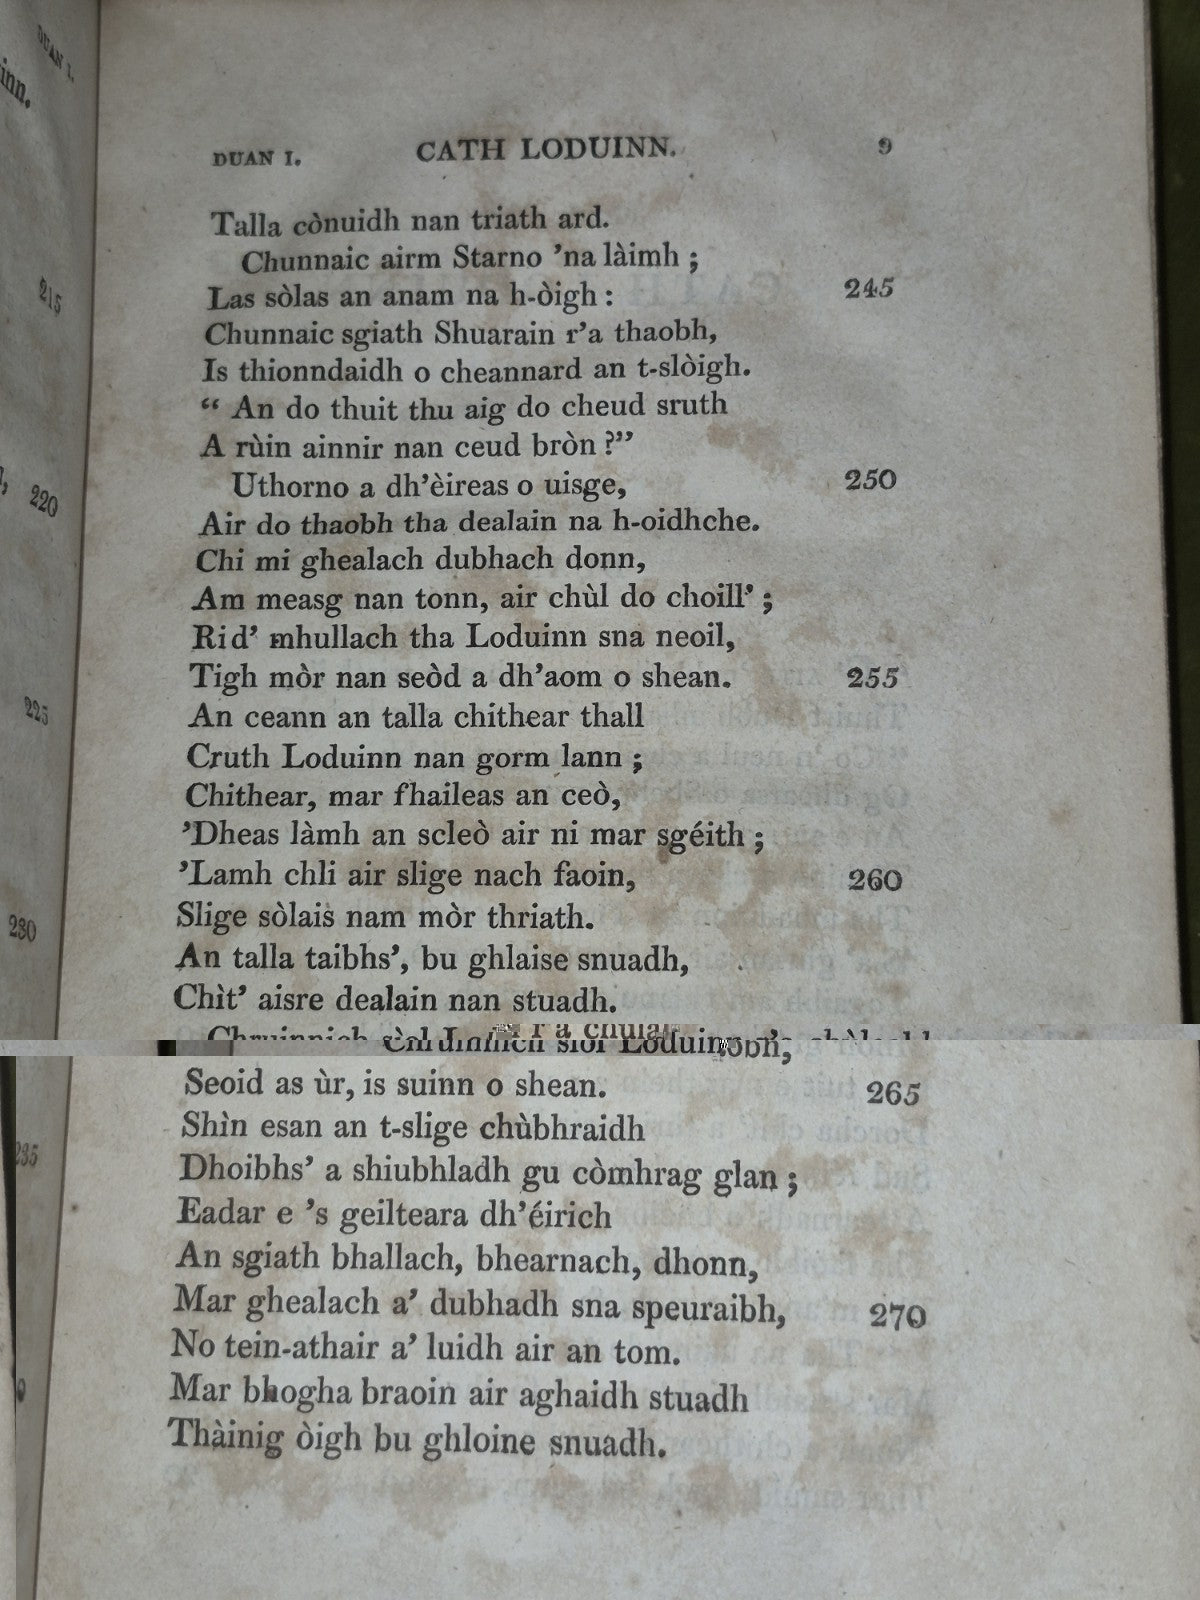 DUAN I.
inn.
215
220
225
230
235
DUAN I. CATH LODUINN. 9
Talla cònuidh nan triath ard.
Chunnaic airm Starno ’na làimh ;
Las sòlas an anam na h-òigh : 245
Chunnaic sgiath Shuarain r’a thaobh,
Is thionndaidh o cheannard an t-slòigh.
“ An do thuit thu aig do cheud sruth
A rùin ainnir nan ceud bròn ?”
Uthorno a dh’èireas o uisge, 250
Air do thaobh tha dealain na h-oidhche.
Chi mi ghealach dubhach donn,
Am measg nan tonn, air chùl do choill’ ;
Rid’ mhullach tha Loduinn sna neoil,
Tigh mòr nan seòd a dh’aom o shean. 255
An ceann an talla chithear thall
Cruth Loduinn nan gorm lann ;
Chithear, mar fhaileas an ceò,
’Dheas làmh an scleò air ni mar sgéith ;
’Lamh chli air slige nach faoin, 260
Slige sòlais nam mòr thriath.
An talla taibhs’, bu ghlaise snuadh,
Chìt’ aisre dealain nan stuadh.
Seoid as ùr, is suinn o shean. 265
Shìn esan an t-slige chùbhraidh
Dhoibhs’ a shiubhladh gu còmhrag glan ;
Eadar e ’s geilteara dh’éirich
An sgiath bhallach, bhearnach, dhonn,
Mar ghealach a’ dubhadh sna speuraibh, 270
No tein-athair a’ luidh air an tom.
Mar bhogha braoin air aghaidh stuadh
Thàinig òigh bu ghloine snuadh.